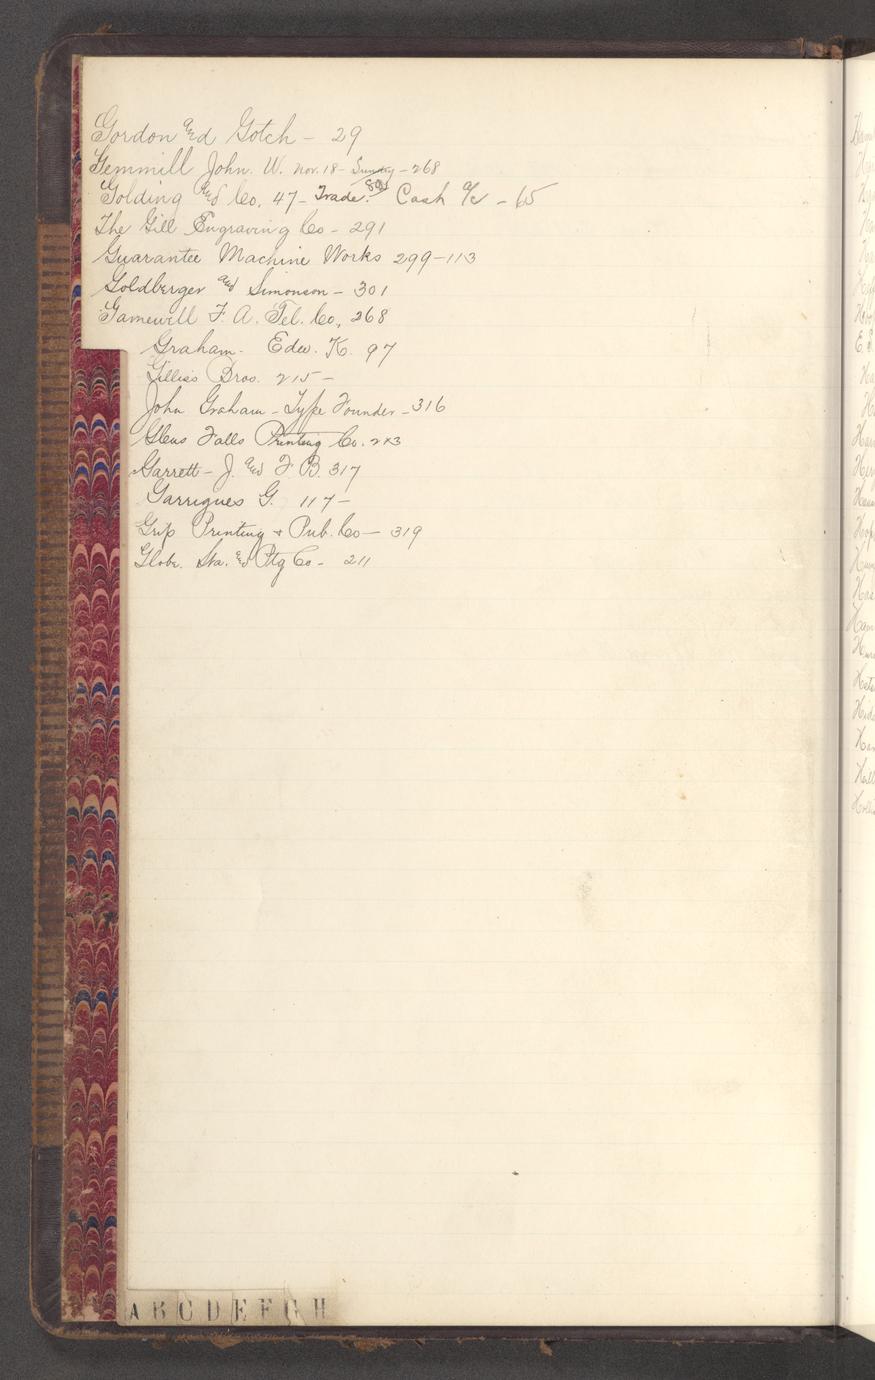 Gordon and Gotch - 29
Gemmill John. W. Nov. 18 - Sundry - 268
Golding and Co. 47 - Trade. Cash a/c - 65
The Gill Engraving Co - 291
Guarantee Machine Works 299-113
Goldberger and Simonson - 301
Gamewell F. A. Tel. Co. 268
Graham. Edw. K. 97
Gilliss Bros. 215 -
John Graham - Type Founder - 316
Glens Falls Printing Co.
Garrett - J. and F. B. 317
Garrigues G. 117 -
Grip Printing + Pub. Co - 319
Globe. Sta. and Ptg Co - 211
A B C D E F G H